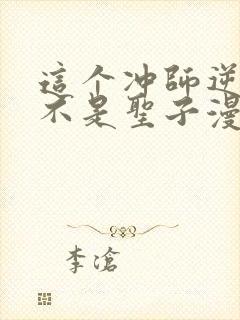 這个冲師逆
不是聖子漫
李滄